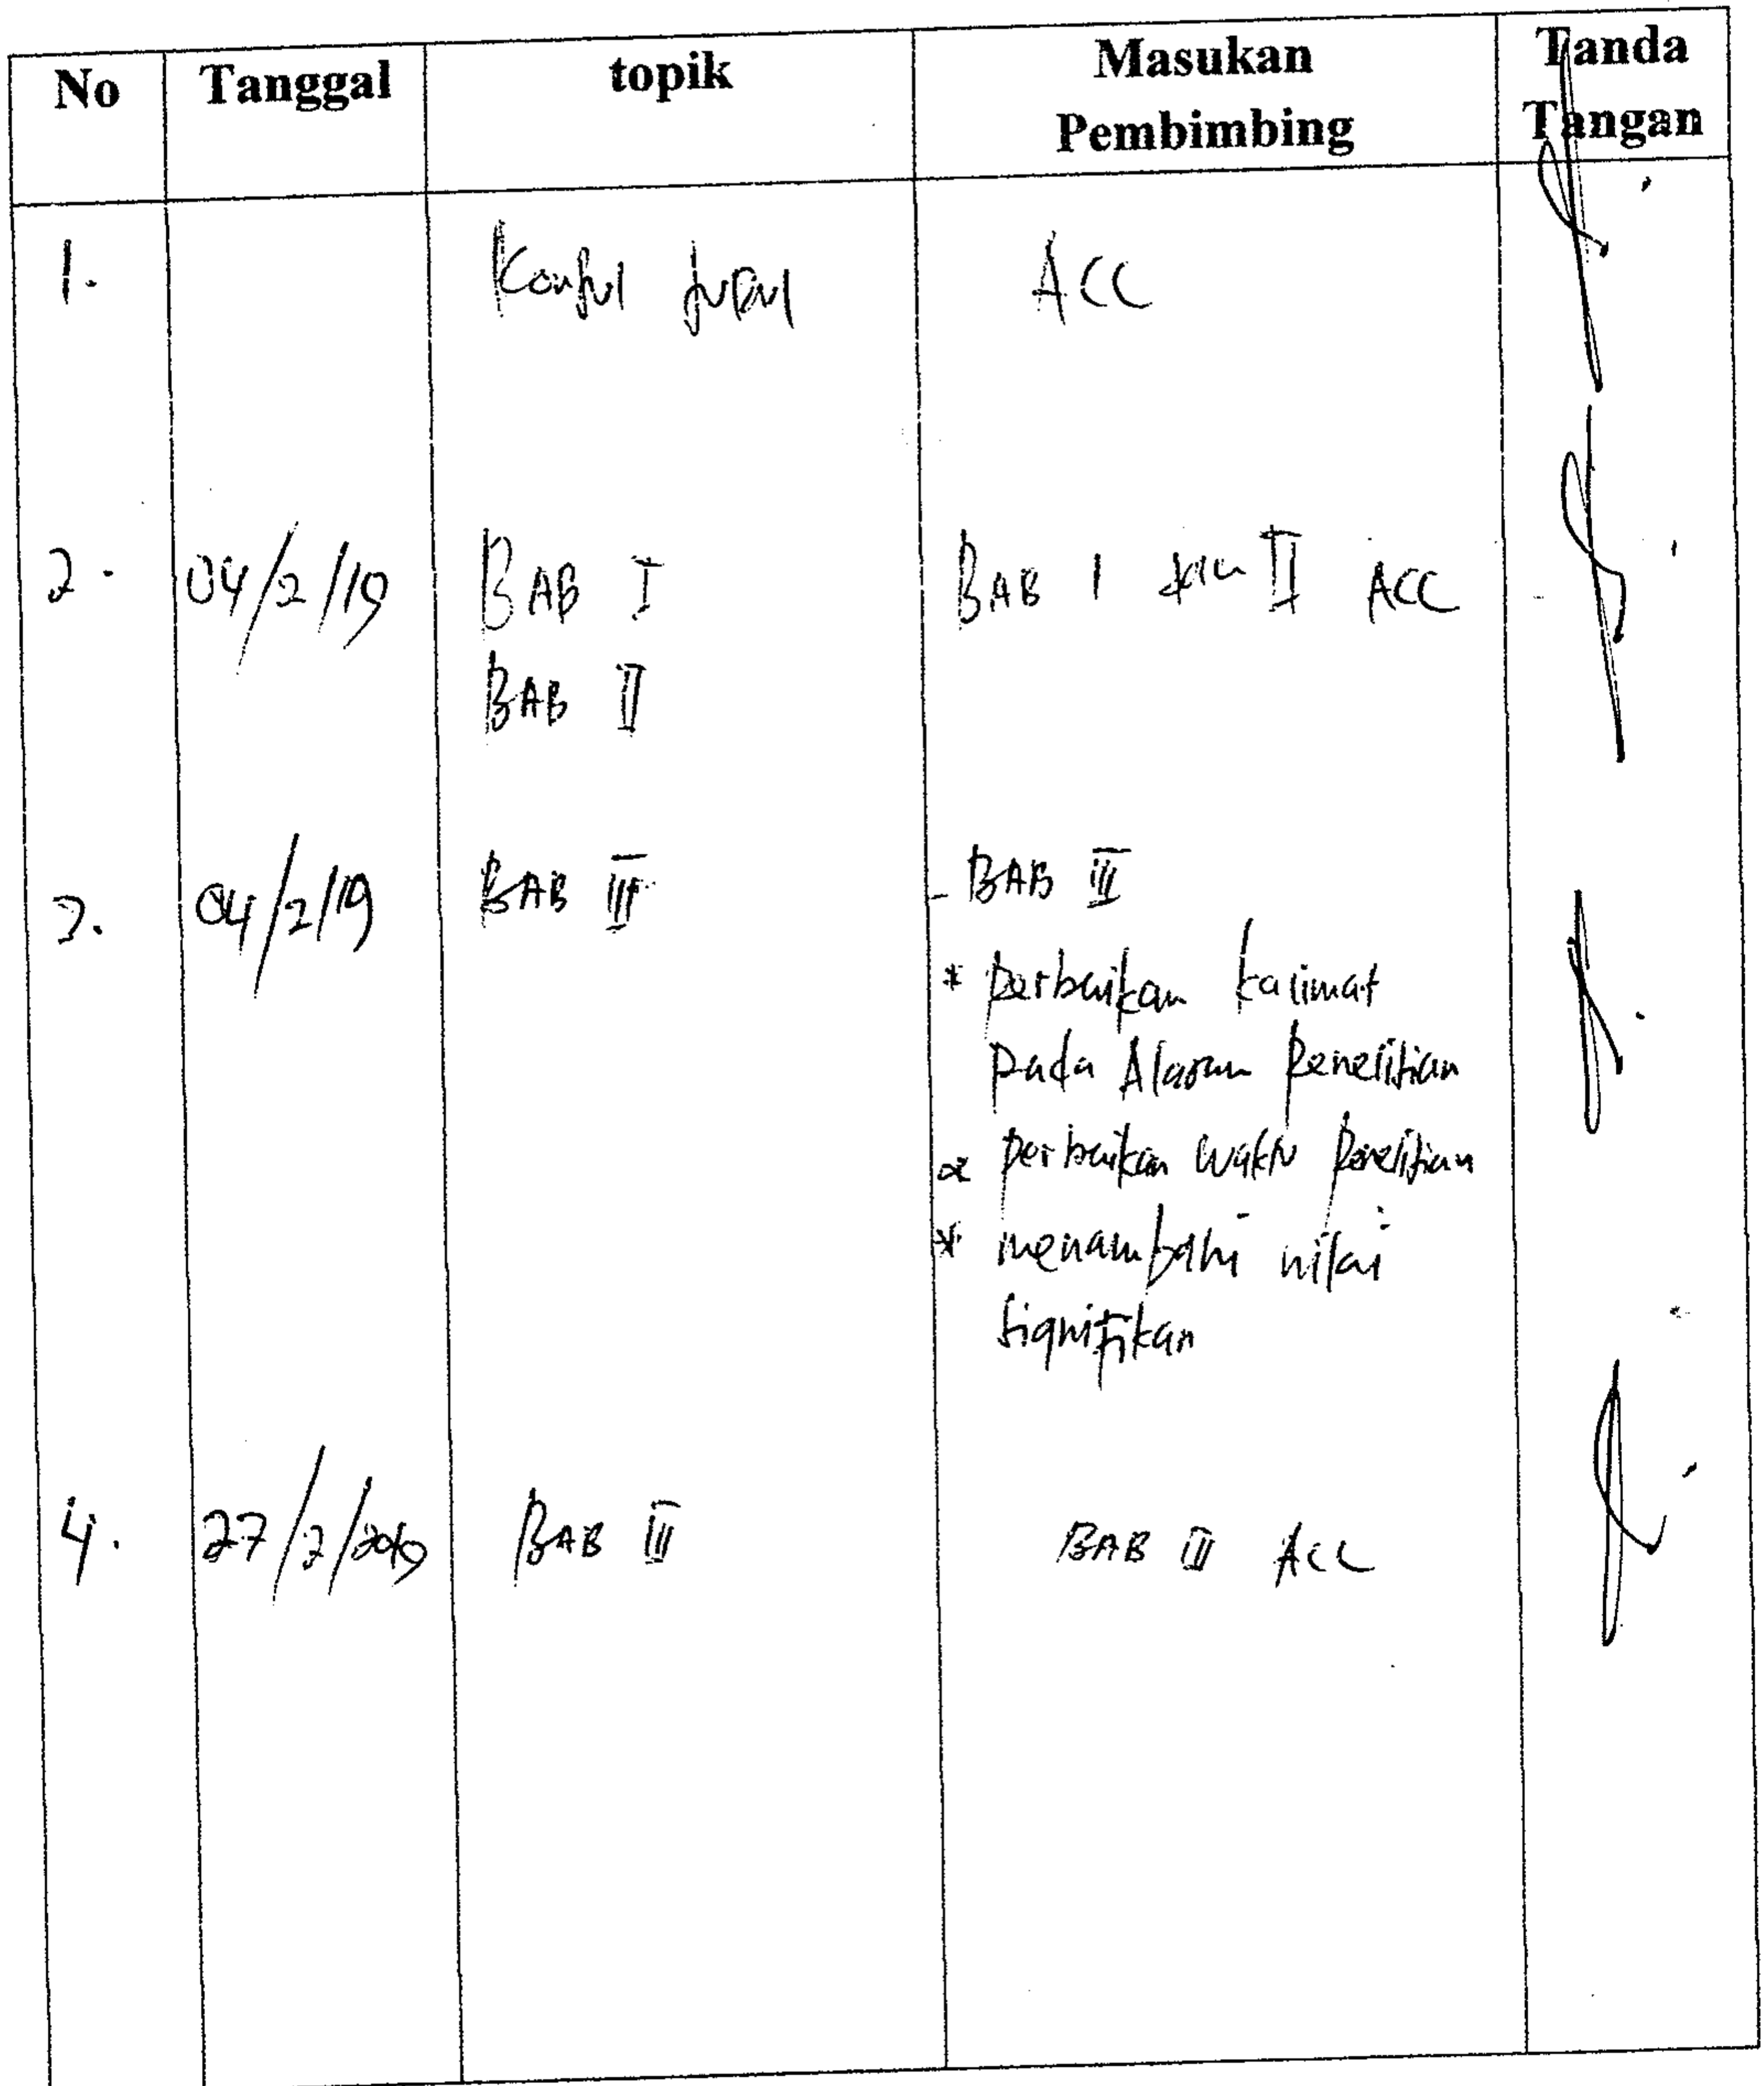 No Tanggal topik Masukan Pembimbing Tanda Tangan
1. Konsul judul ACC
2. 04/2/19 BAB I BAB I dan II ACC
BAB II
3. 04/2/19 BAB III - BAB III
* perbaikan kalimat
pada Alasan penelitian
* perbaikan waktu penelitian
* menambahi nilai
signifikan
4. 27/2/2019 BAB III BAB III ACC